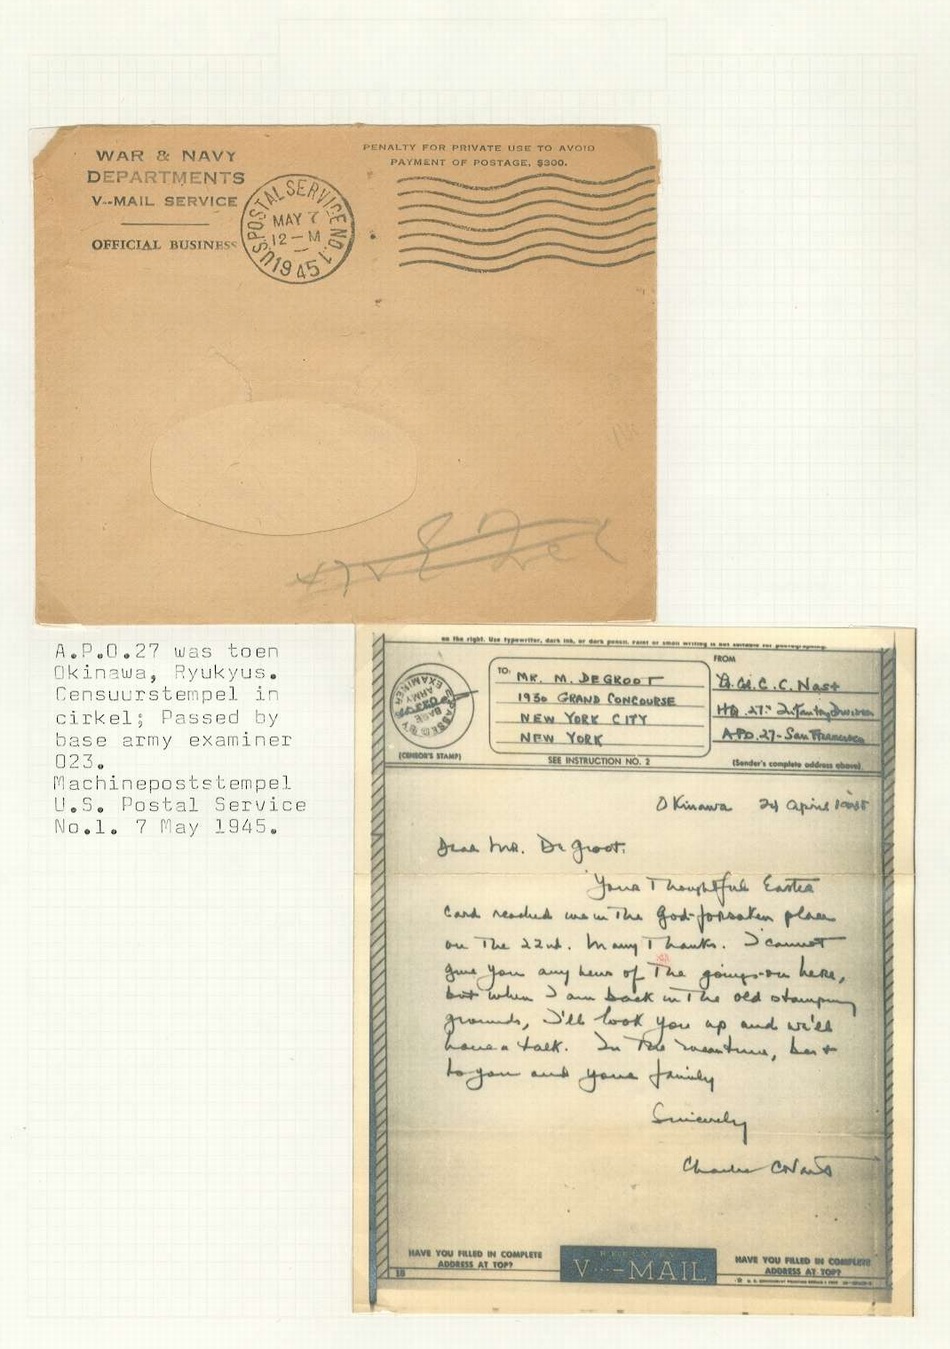 WAR & NAVY
DEPARTMENTS
V--MAIL SERVICE
OFFICIAL BUSINESS
U.S. POSTAL SERVICE NO. 1.
MAY 7
12 — M
1945
PENALTY FOR PRIVATE USE TO AVOID
PAYMENT OF POSTAGE, $300.
A.P.O.27 was toen
Okinawa, Ryukyus.
Censuurstempel in
cirkel; Passed by
base army examiner
023.
Machinepoststempel
U.S. Postal Service
No.1. 7 May 1945.
on the right. Use typewriter, dark ink, or dark pencil. Faint or small writing is not suitable for photographing.
PASSED BY
BASE
ARMY
EXAMINER
(CENSOR'S STAMP)
TO:
MR. M. DE GROOT
1930 GRAND CONCOURSE
NEW YORK CITY
NEW YORK
SEE INSTRUCTION NO. 2
FROM
C. C. Nast
HQ 27th Infantry Division
APO 27 - San Francisco
(Sender's complete address above)
Okinawa 24 April 1945
Dear Mr. De Groot:
Your Thoughtful Easter
card reached me in the God-forsaken place
on the 22nd. Many Thanks. I cannot
give you any news of the goings-on here,
but when I am back in the old stamping
grounds, I'll look you up and we'll
have a talk. In the meantime, best
to you and your family
Sincerely
Charles C Nast
HAVE YOU FILLED IN COMPLETE
ADDRESS AT TOP?
V···—MAIL
HAVE YOU FILLED IN COMPLETE
ADDRESS AT TOP?